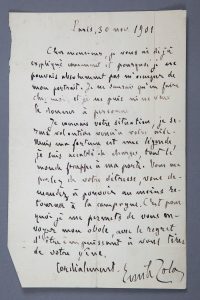 Paris, 30 nov. 1901
Cher monsieur, je vous ai déjà
expliqué comment et pourquoi je ne
pouvais absolument pas m'occuper de
mon portrait. Je ne saurais qu'en faire
chez moi, et je ne puis ni ne veux
le donner à personne.
Je connais votre situation, je se-
rais volontiers venu à votre aide.
mais ma fortune est une légende,
je suis accablé de charges, tout le
monde frappe à ma porte. Vous me
parlez de votre détresse, vous de-
mandez à pouvoir au moins re-
tourner à la campagne. C'est pour-
quoi je me permets de vous en-
voyer mon obole, avec le regret
d'être impuissant à vous tirer
de votre gêne.
Cordialement.
Emile Zola